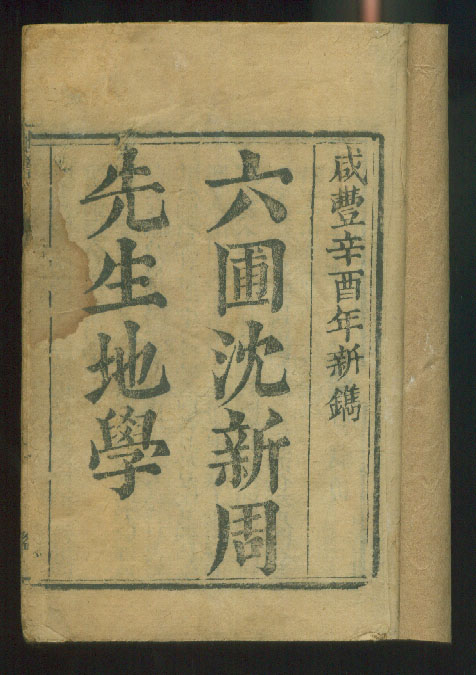 咸豐辛酉年新鐫
六圃沈新周
先生地學